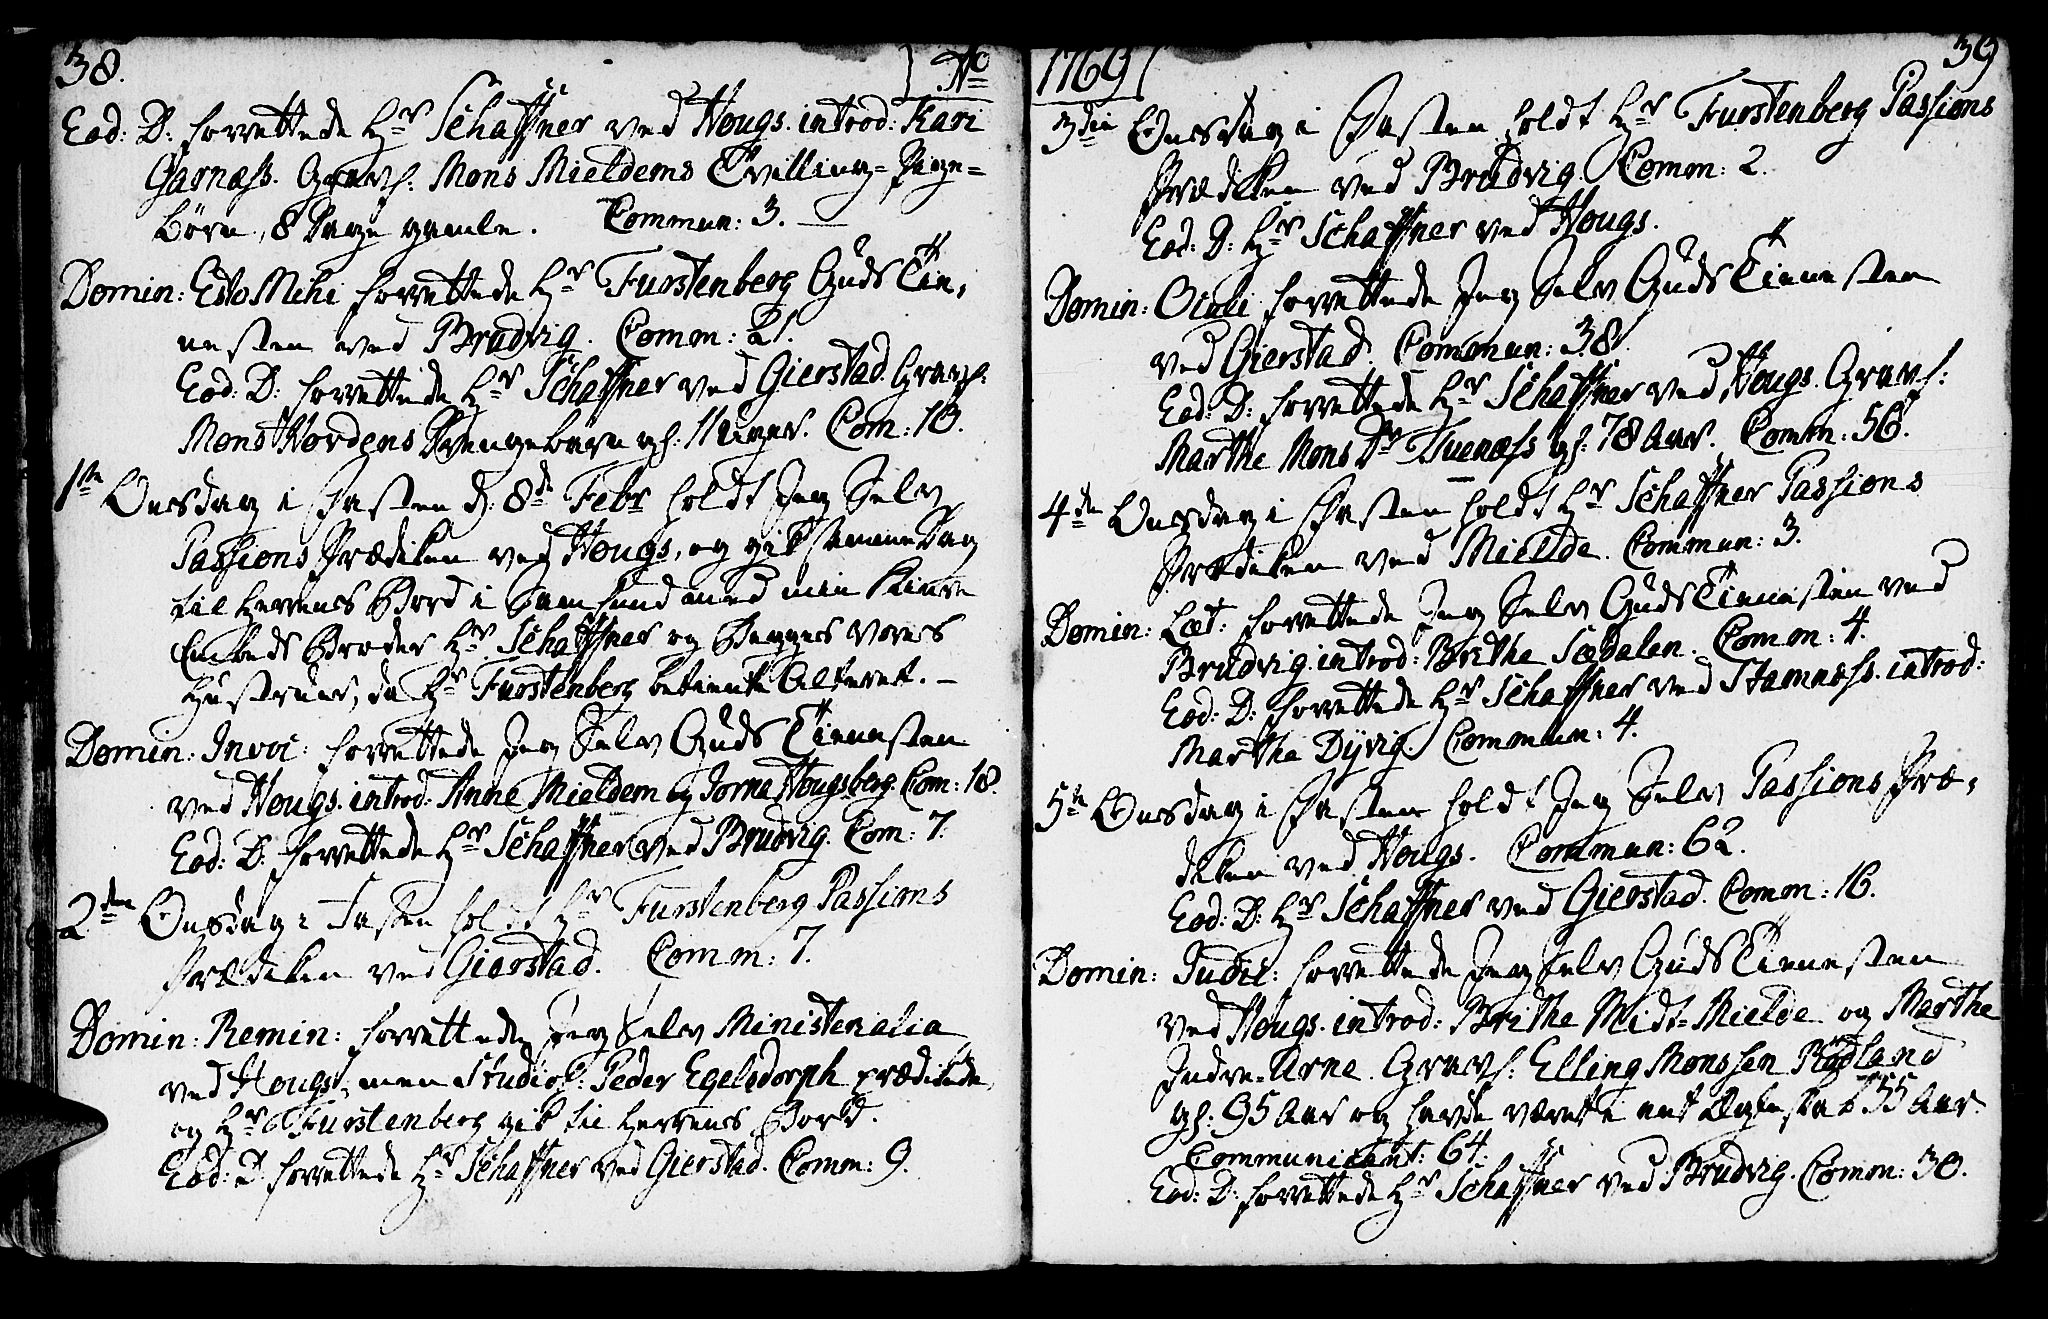 38. Ao
Eod: D: forrettede Hr Schaffner ved Hougs. introd: Kari
Garnæss. Gravf: Mons Mieldems Tvilling-Pige-
børn, 8 Dage gamle. Commun: 3.
Domin: Esto Mihi forrettede Hr Furstenberg Guds Tie-
nesten ved Brudvig. Comm: 21.
Eod: D: forrettede Hr Schaffner ved Gierstad. Gravf:
Mons Hordens Drengebarn gl: 11 uger. Com: 10.
1te Onsdag i Fasten d: 8de Febr holdt Jeg Selv
Passions Prædiken ved Hougs, og gik samme Dag
til Herrens Bord i Samfund med min Kiære
Embeds Broder Hr Schaffner og Begges vores
Hustruer, da Hr Furstenberg betiente Alteret.
Domin: Invoc: forrettede Jeg Selv Guds Tienesten
ved Hougs. introd: Anne Mieldem og Jorne Hougsberg. Com: 18.
Eod: D: forrettede Hr Schaffner ved Brudvig. Com: 7.
2den Onsdag i Fasten holdt Hr Furstenberg Passions
Prædiken ved Gierstad. Comm: 7.
Domin: Remin: forrettede Jeg Selv Ministerialia
ved Hougs, men Studios: Peder Egelsdorph prædikede,
og Hr Furstenberg gik til Herrens Bord.
Eod: D: forrettede Hr Schaffner ved Gierstad. Comm: 9.
1769 39
3die Onsdag i Fasten holdt Hr Furstenberg Passions
Prædiken ved Brudvig. Comm: 2.
Eod: D: Hr Schaffner ved Hougs.
Domin: Oculi forrettede Jeg Selv Guds Tienesten
ved Gierstad. Commun: 38.
Eod: D: forrettede Hr Schaffner ved Hougs. Gravf:
Marthe Mons Dr Tuenæss gl: 78 Aar. Comm: 56.
4de Onsdag i Fasten holdt Hr Schaffner Passions
Prædiken ved Mielde. Commun: 3.
Domin: Læt: forrettede Jeg Selv Guds Tienesten ved
Brudvig. introd: Brithe Sædalen. Comm: 4.
Eod: D: forrettede Hr Schaffner ved Stamnæss. introd:
Martha Dyvig. Commun: 4.
5te Onsdag i Fasten holdt Jeg Selv Passions Præ-
diken ved Hougs. Commun: 62.
Eod: D: Hr Schaffner ved Gierstad. Comm: 16.
Domin: Judic: forrettede Jeg Selv Guds Tienesten
ved Hougs. introd: Brithe Midt-Mielde og Marthe
Indre-Arne. Gravf: Elling Monssen Rødland
gl: 95 Aar og havde været i eet Ægteskab 55 Aar.
Communicant: 64.
Eod: D: forrettede Hr Schaffner ved Brudvig. Comm: 30.